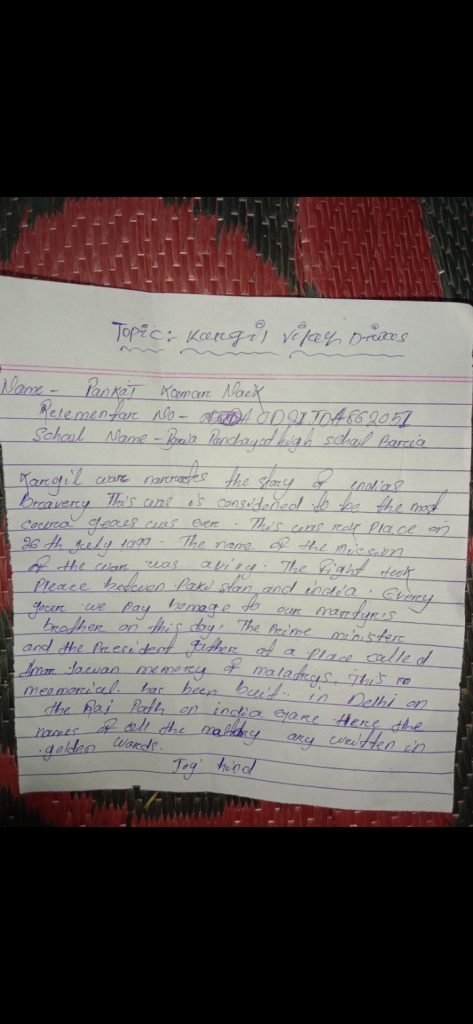 Topic: Kargil vijay Diwas
Name - Pankaj Kumar Naek
Relementar No - OD21TDA862051
School Name - Panchayat high school Barcia
Kargil war narrates the story of indias
bravery This was is considered to be the most
was ever. This was place on
26 th july 1999. The name of the mission
of the war was . The fight took
Pleace between Pakistan and india. Every
year we Pay homage to our martyr's
brother on this day. The Prime minister
and the President gather at a place called
Amar Jawan memory of . This
meomorcial. has been buit. in Delhi on
the Raj Path on india Here the
names of all the any written in
golden words.
Jay hind